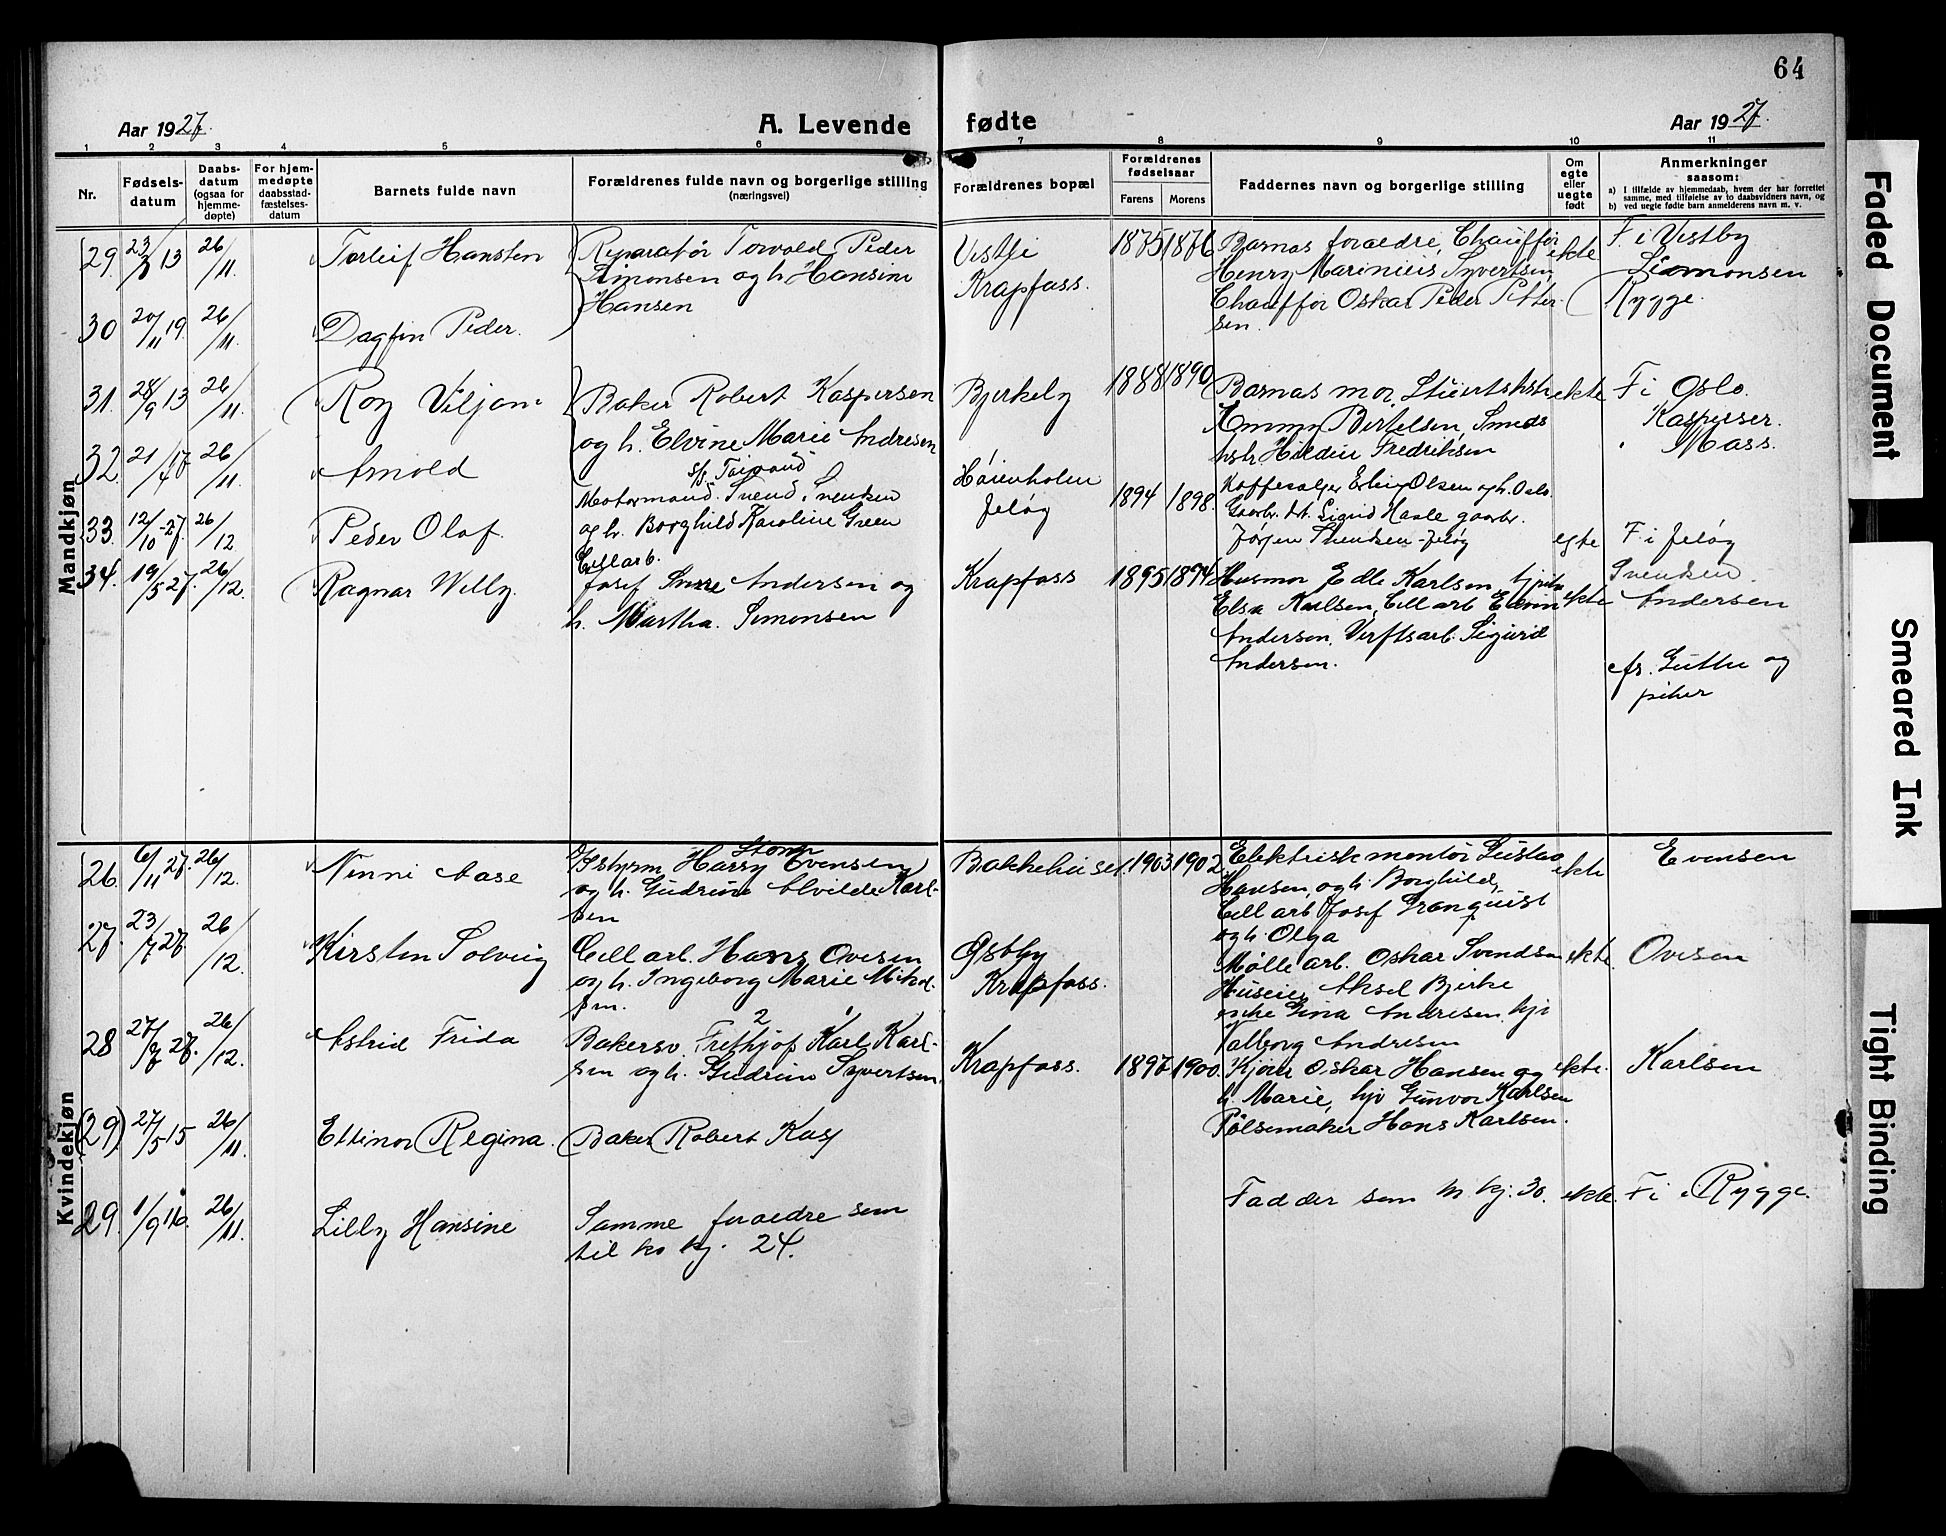 64
Aar 1927.
A. Levende fødte
Aar 1927.
1 2 3 4 5 6 7 8 9 10 11
Nr.
Fødsels-
datum
Daabs-
datum
(ogsaa for
hjemme-
døpte)
For hjem-
medøpte
daabsstad-
fæstelses-
datum
Barnets fulde navn
Forældrenes fulde navn og borgerlige stilling
(næringsvei)
Forældrenes bopæl
Forældrenes
fødselsaar
Farens
Morens
Faddernes navn og borgerlige stilling
Om
egte
eller
uegte
født
Anmerkninger
saasom:
a) I tilfælde av hjemmedaab, hvem der har forrettet
samme, med tilføielse av to daabsvidners navn, og
b) ved uegte fødte barn anmelderens navn m. v.
Mandkjøn
29. 13 26/11. Torleif Hansten
Reparatør Torvald Peder
Simonsen og h. Hansine
Hansen
Vestli
Krapfoss.
1875 1876
Barnas foraedre, Chauffør
Henry Marinius Syvertsen,
Chauffør Oskar Peder Petter-
sen.
ekte
F. i Vestby
Simonsen
Rygge.
30 20/11 19. 26/11. Dagfin Peder.
31. 28/9 13 26/11. Roy Viljam
Baker Robert Kaspersen
og h. Elvine Marie Andresen
Bjerkely
1888 1890
Barnas mor,
Bertelsen, Smeds
hstr. Fredriksen
ekte
F i Oslo.
Kasperser.
Mass.
32 21/4 17 26/11. Arnold
33. 12/10 -27. 26/12 Peder Olaf.
Motormand Svend Svendsen
og h. Borghild Karoline Green
Høienholen
Jeløy
1894 1898.
Kaffesælger Erling Olsen og h.
Gaarbr. Sigrid Hasle gaarbr.
Jørgen Svendsen - Jeløy
egte
F i Jeløy
Svendsen.
34. 19/5 27. 26/12. Ragnar Willy.
Cellarb.
Josef Andersen og
h. Martha. Simonsen
Krapfoss
1895 1894
Husmor Karlsen,
Elsa Karlsen, Cellarb Edvin
Andersen, Verftsarb. Sigurd
Andersen.
ekte
Andersen
cfr. Gutter og
piker
Kvindekjøn
26. 6/11 27. 26/12. Ninni Aase
Harry Evensen
og h. Gudrun Alvilde Karl-
sen
Bakkehuset.
1903 1902
Elektriskmontør Gustav
Hansen og h. Borghild,
Cellarb Josef Granquist
og h. Olga
ekte
Evensen
27. 23/7 27. 26/12. Kirsten Solveig
Cellarb. Hans Ovesen
og h. Ingeborg Marie Mikal-
sen.
Østby
Krapfoss.
Mølle arb. Oskar Svendsen
Huseier Aksel Bjerke
enke Gina Andresen hjv
Valborg Andresen
ekte.
Ovesen
28 27. 26/12. Astrid Frida
Bakersv. Frithjof Karl Karl-
sen og h. Gudrun Syvertsen.
Krapfoss.
1897 1900.
Kjører Oskar Hansen og
h. Marie, hjv Gunvor Karlsen
Pølsemaker Hans Karlsen.
ekte.
Karlsen
(29) 27/5 15 26/11. Ellinor Regina.
Baker Robert Kas
29. 1/9 16. 26/11. Lilly Hansine
Samme foraedre som
til kv kj. 24.
Fadder som m. kj. 30.
ekte.
F i Rygge.
Faded Document
Smeared Ink
Tight Binding